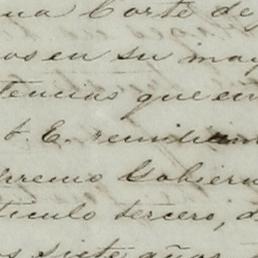 una Corte de
os en su may
tencias que en
S. E. remitian
premo Gobiern
tículo tercero, d
os siete años